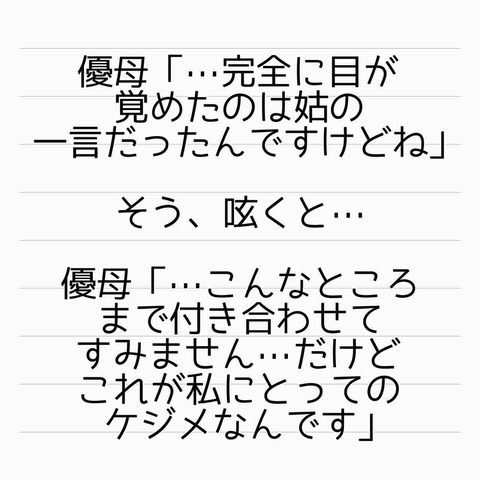 優母「…完全に目が
覚めたのは姑の
一言だったんですけどね」
そう、呟くと…
優母「…こんなところ
まで付き合わせて
すみません…だけど
これが私にとっての
ケジメなんです」